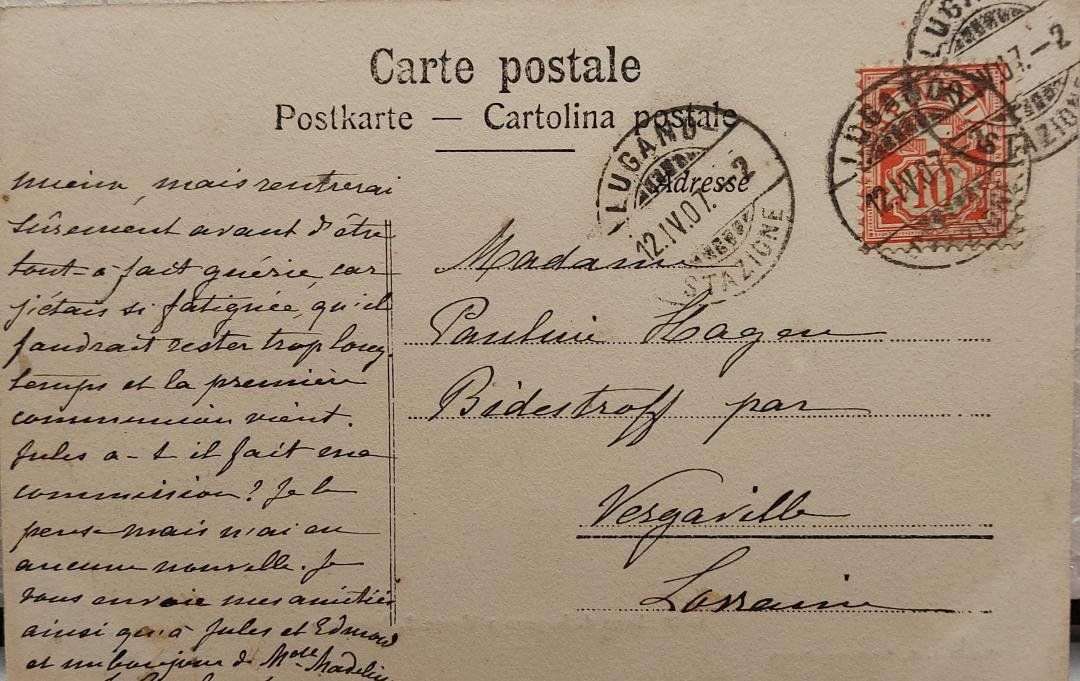 Carte postale
Postkarte — Cartolina postale
Adresse
LUGANO 2
12.IV.07.
STAZIONE
LUGANO
12.IV.07.
10
LUGANO
IV.07.–2
STAZIONE
mieux mais rentrerai
sûrement avant d'être
tout-à-fait guérie, car
j'étais si fatiguée, qu'il
faudrait rester trop long
temps et la première
communion vient.
Jules a-t il fait ma
commission? Je le
pense mais n'ai eu
aucune nouvelle. Je
vous envoie mes amitiés
ainsi qu'à Jules et Edmond
et un bonjour de Melle Madelin
Madame
Pauline Hagen
Bidestroff par
Vergaville
Lorraine